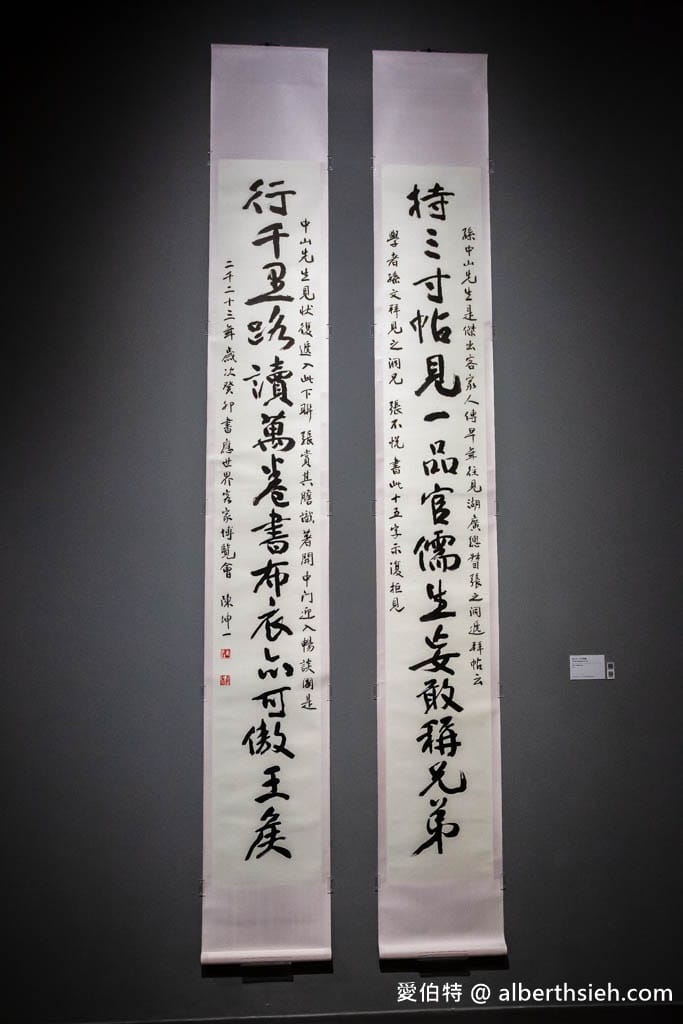 孫中山先生是傑出客家人傳早年往見湖廣總督張之洞遞拜帖云
持三寸帖見一品官儒生妄敢稱兄弟
學者孫文拜見之洞兄 張不悅 書此十五字示復拒見
中山先生見狀復遞入此下聯 張賞其膽識著開中門迎入暢談國是
行千里路讀萬卷書布衣亦可傲王侯
二千二十三年歲次癸卯書應世界客家博覽會 陳坤一
愛伯特 @ alberthsieh.com